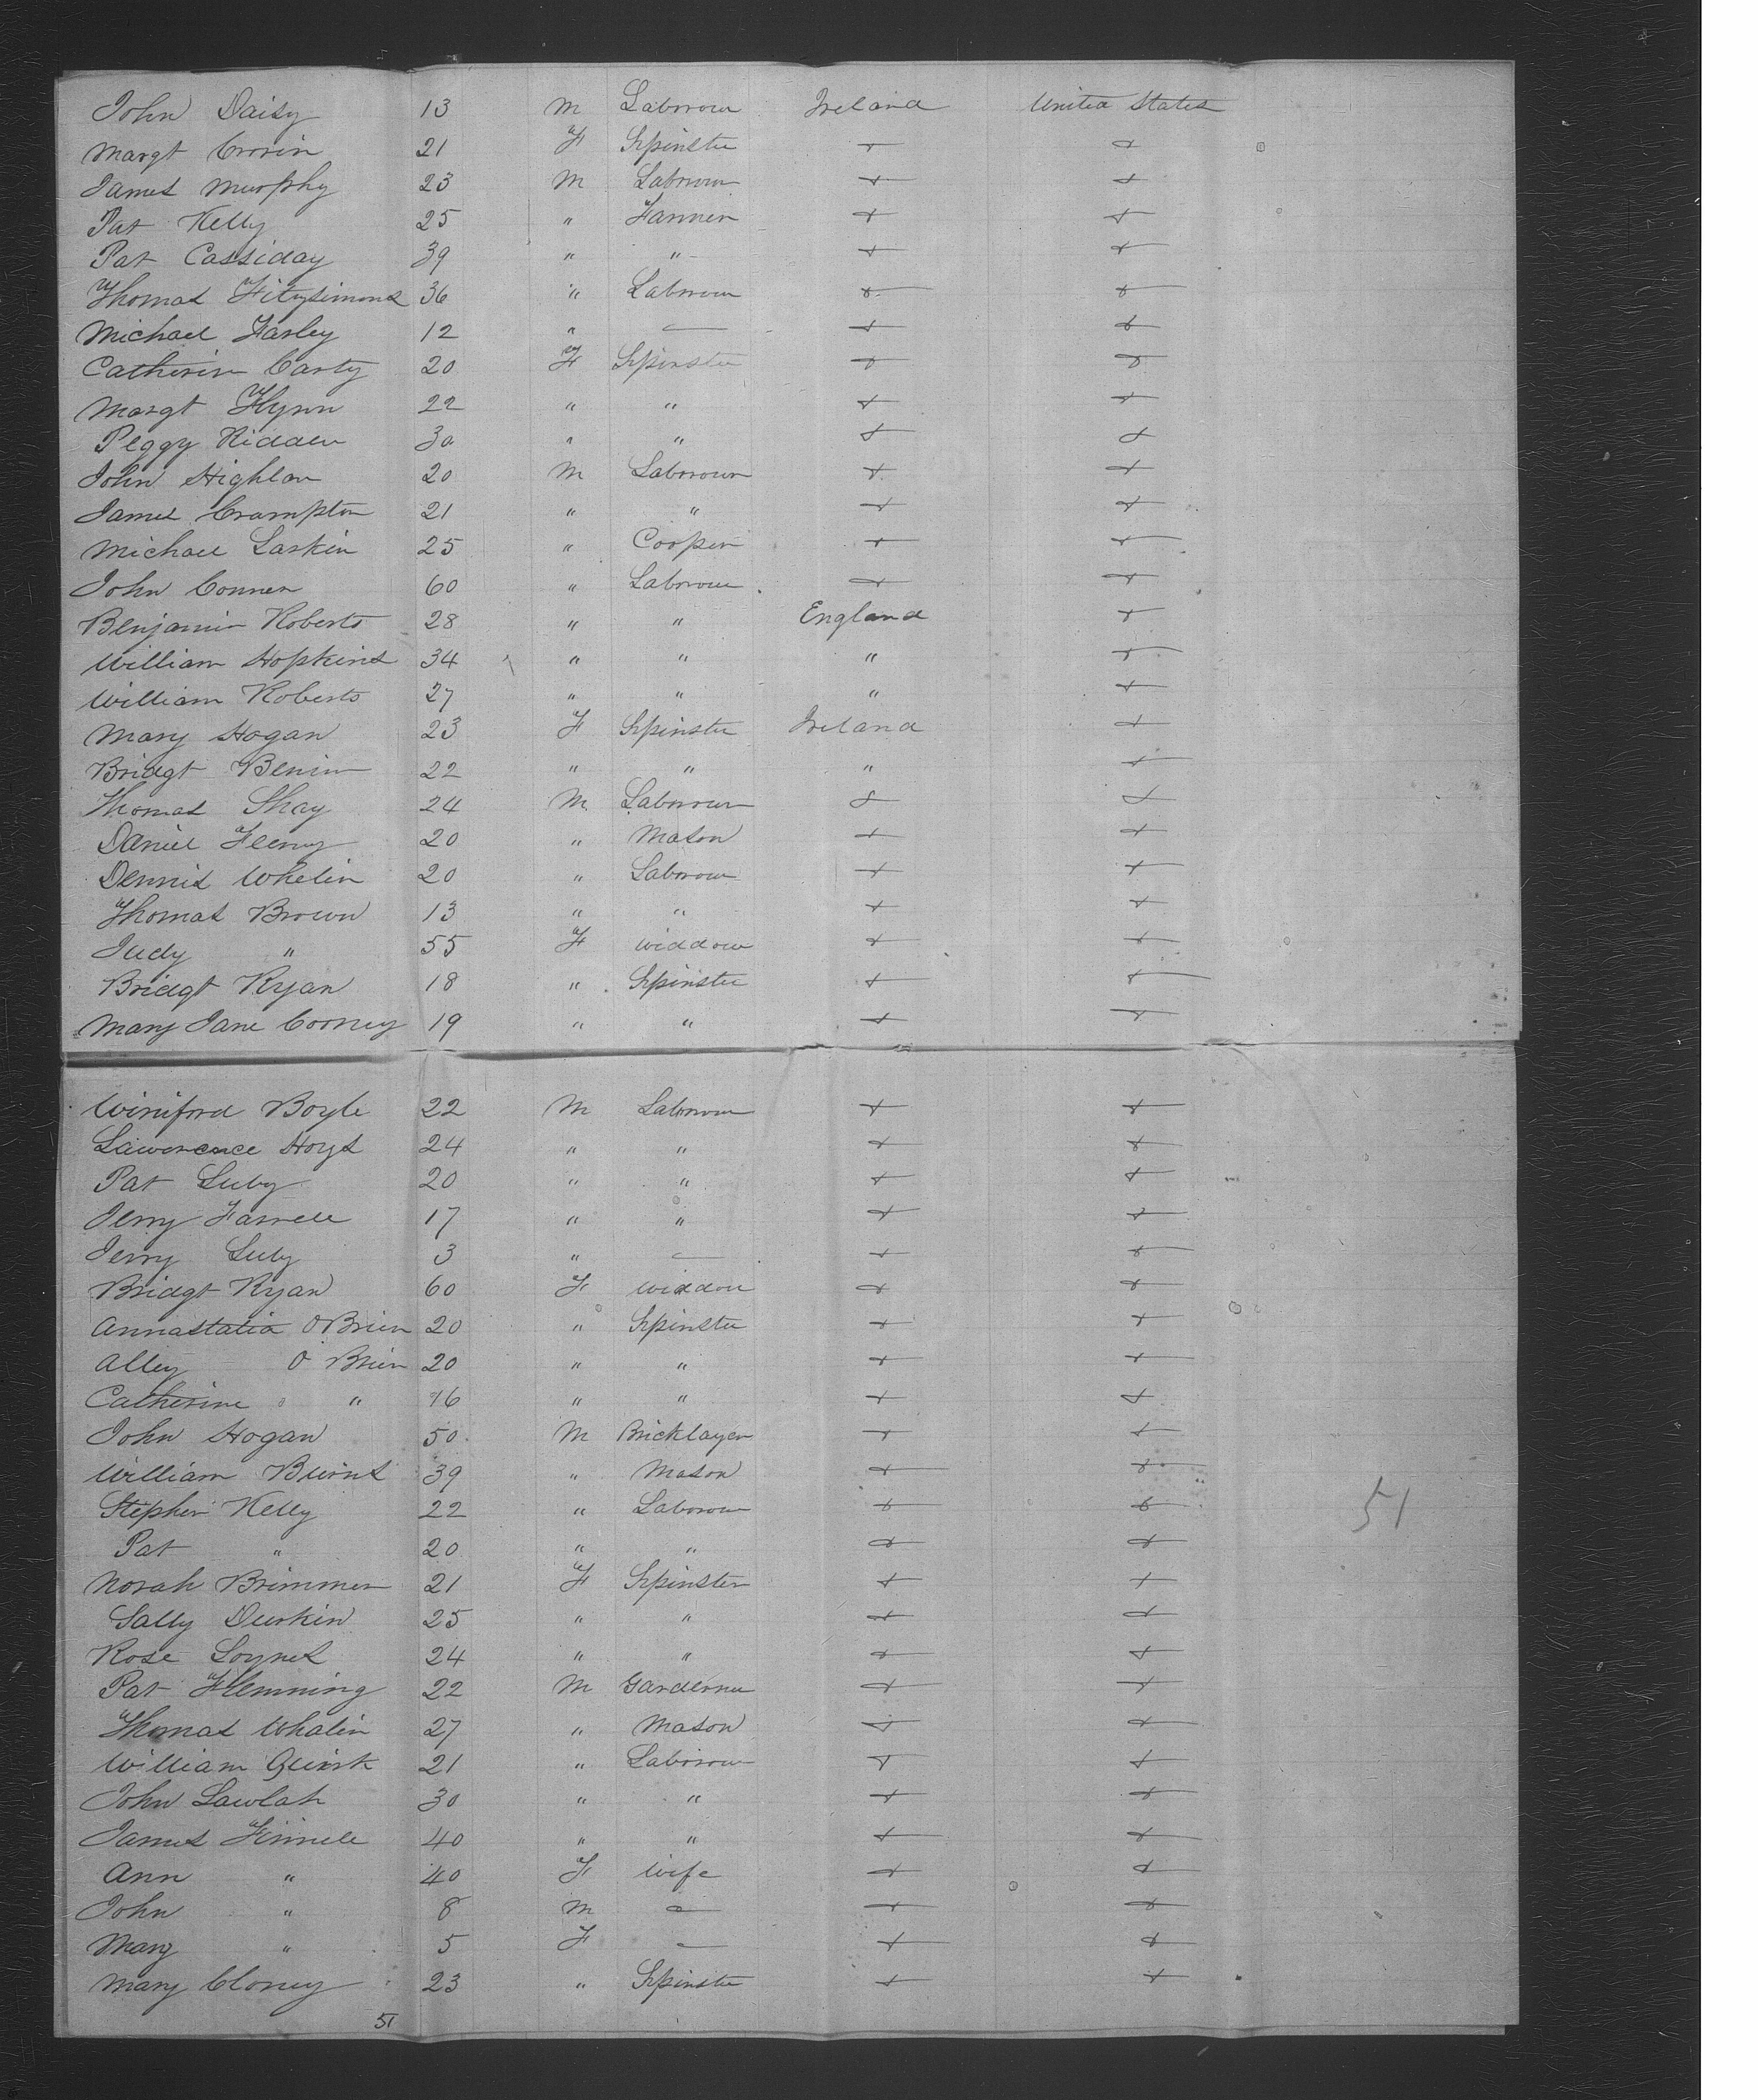 John Daisy 13 M Laborour Ireland United States
Margt Cronin 21 F Spinster + +
James Murphy 23 M Laborour + +
Pat Kelly 25 " Farmer + +
Pat Cassiday 39 " " + +
Thomas Fitzsimons 36 " Laborour + +
Michael Farley 12 " — + +
Catherin Carty 20 F Spinster + +
Margt Flynn 22 " " + +
Peggy 30 " " + +
John Highlan 20 M Laborour + +
James Crampton 21 " " + +
Michael Larkin 25 " Cooper + +
John Conner 60 " Laborour + +
Benjamin Roberts 28 " " England +
William Hopkins 34 " " " +
William Roberts 27 " " " +
Mary Hogan 23 F Spinster Ireland +
Bridgt Benin 22 " " " +
Thomas Shay 24 M Laborour + +
Daniel 20 " Mason + +
Dennis Whelin 20 " Laborour + +
Thomas Brown 13 " " + +
Judy " 55 F widdow + +
Bridgt Ryan 18 " Spinster + +
Mary Jane Cooney 19 " " + +
Winiford Boyle 22 M Laborour + +
Lawerence Hoys 24 " " + +
Pat Luby 20 " " + +
Jerry Farrell 17 " " + +
Jerry Luby 3 " — + +
Bridgt Ryan 60 F widdow + +
Annastatia OBrien 20 " Spinster + +
Alley O Brien 20 " " + +
Catherine " 16 " " + +
John Hogan 50 M Bricklayer + +
William Burns 39 " Mason + +
Stephen Kelly 22 " Laborour + +
Pat " 20 " " + +
Norah Brimmer 21 F Spinster + +
Sally Durkin 25 " " + +
Rose Loynes 24 " " + +
Pat Flemming 22 M Garderner + +
Thomas Whalin 27 " Mason + +
William Quirk 21 " Laborour + +
John Lawlah 30 " " + +
James Finnell 40 " " + +
Ann " 40 F Wife + +
John " 8 M — + +
Mary " 5 F — + +
Mary Cloney 23 " Spinster + +
51
51